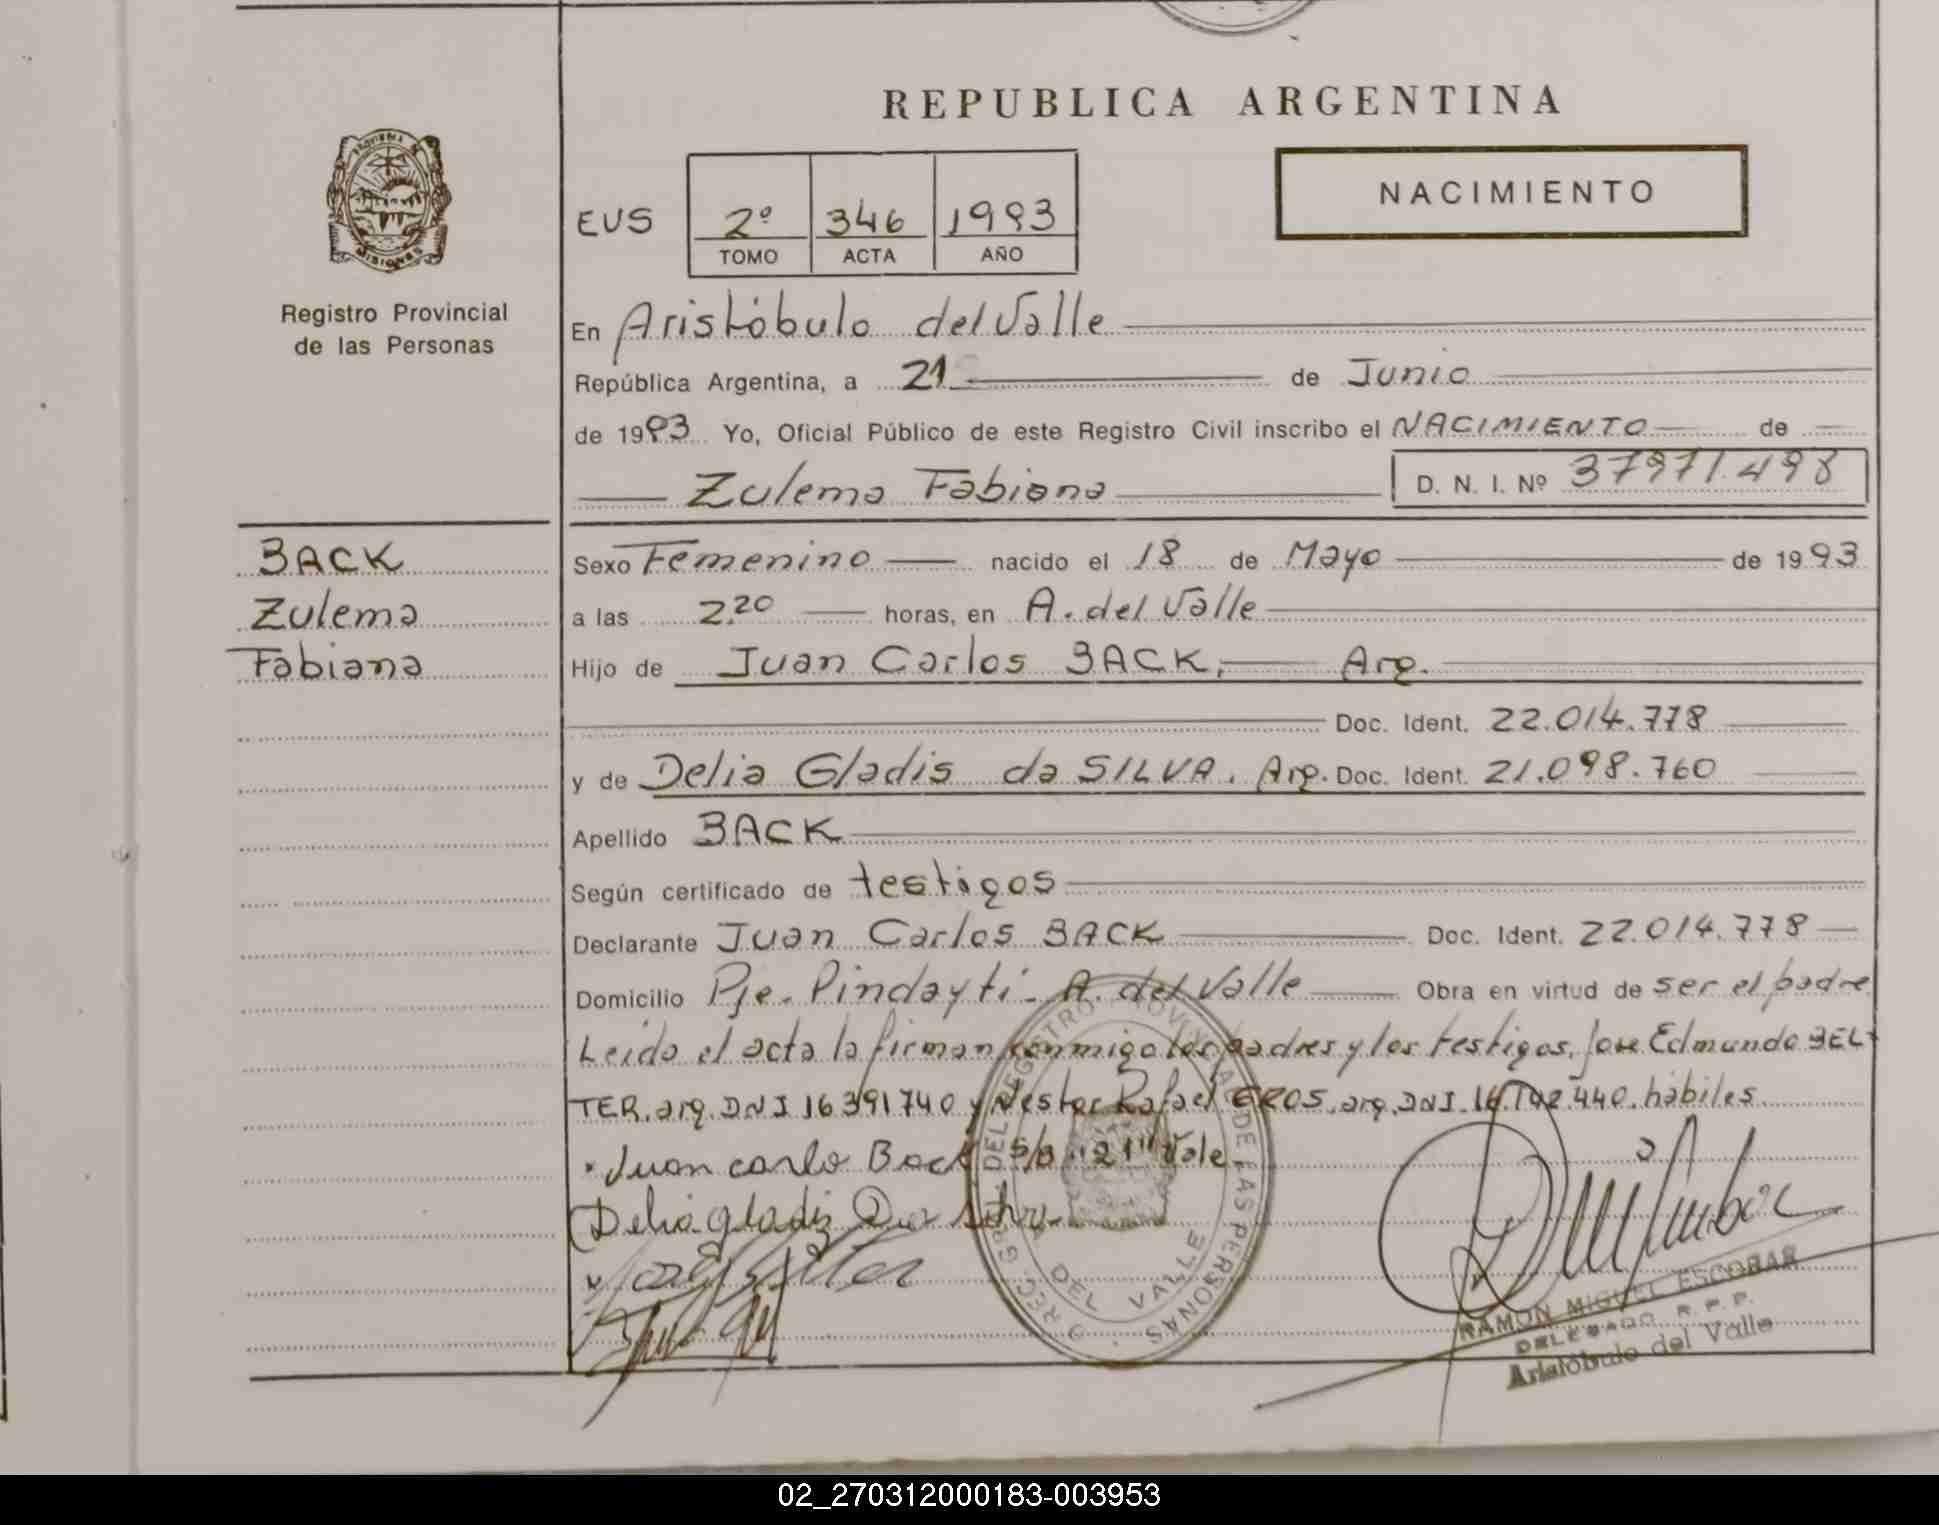 REPUBLICA ARGENTINA
NACIMIENTO
EUS 2º 346 1993
TOMO ACTA AÑO
PROVINCIA MISIONES
Registro Provincial
de las Personas
En Aristóbulo del Valle
República Argentina, a 21 de Junio
de 1993 Yo, Oficial Público de este Registro Civil inscribo el NACIMIENTO de
Zulema Fabiana D. N. I. Nº 37971.498
BACK
Zulema
Fabiana
Sexo Femenino nacido el 18 de Mayo de 1993
a las 2.20 horas, en A. del Valle
Hijo de Juan Carlos BACK, Arg.
Doc. Ident. 22.014.778
y de Delia Gladis da SILVA. Arg. Doc. Ident. 21.098.760
Apellido BACK
Según certificado de testigos
Declarante Juan Carlos BACK Doc. Ident. 22.014.778
Domicilio Pje. Pindayti - A. del Valle Obra en virtud de ser el padre
Leido el acta la firman conmigo los padres y los testigos, Jose Edmundo BEL-
TER. arg. DNI 16391740 y Nestor Rafael EROS. arg. DNI. 16.102.440. hábiles
Juan carlo Back S/B "21" Vale
Delia gladiz Da Silva
DEL REGISTRO PROVINCIAL DE LAS PERSONAS
DEL VALLE
RAMON MIGUEL ESCOBAR
DELEGADO R. P. P.
Aristóbulo del Valle
02_270312000183-003953